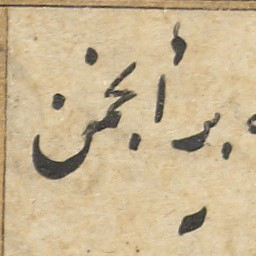 بر انجمن